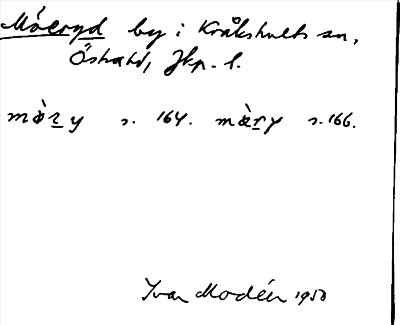 Möeryd by i Kråkshults sn,
Östra hd, Jkp. l.
màry s. 164. màry s. 166.
Ivar Modéer 1950